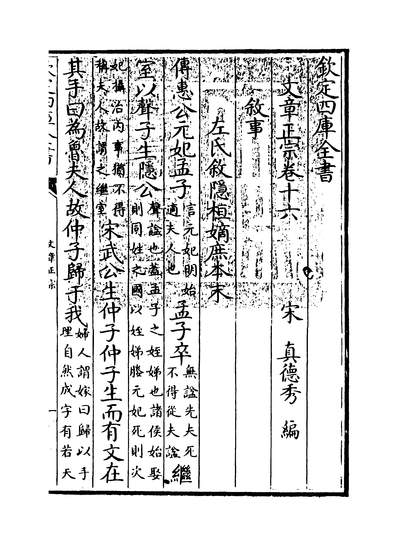 欽定四庫全書
文章正宗卷十六　宋　真德秀　編
敘事
左氏敘隱桓嫡庶本末
傳惠公元妃孟子言元妃明始適夫人也孟子卒無諡先夫死不得從夫諡繼
室以聲子生隱公聲諡也蓋孟子之姪娣也諸侯始娶則同姓之國以姪娣媵元妃死則次
妃攝治內事猶不得稱夫人故謂之繼室宋武公生仲子仲子生而有文在
其手曰為魯夫人故仲子歸于我婦人謂嫁曰歸以手理自然成字有若天
文章正宗